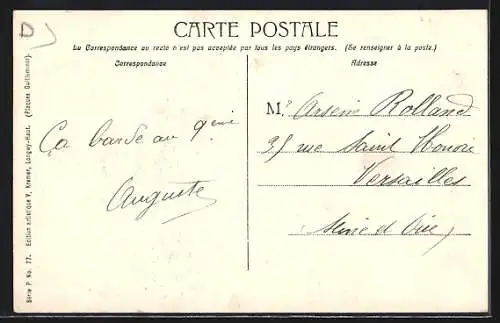 D
CARTE POSTALE
La Correspondance au recto n'est pas acceptée par tous les pays étrangers. (Se renseigner à la poste.)
Correspondance
Adresse
Ça barde au 9ème
Auguste
Mr Arsène Rolland
35 rue Saint Honoré
Versailles
Seine et Oise
Série P No. 77. Edition artistique V. Kremer, Longwy-Haut. (Plaques Guilleminot).